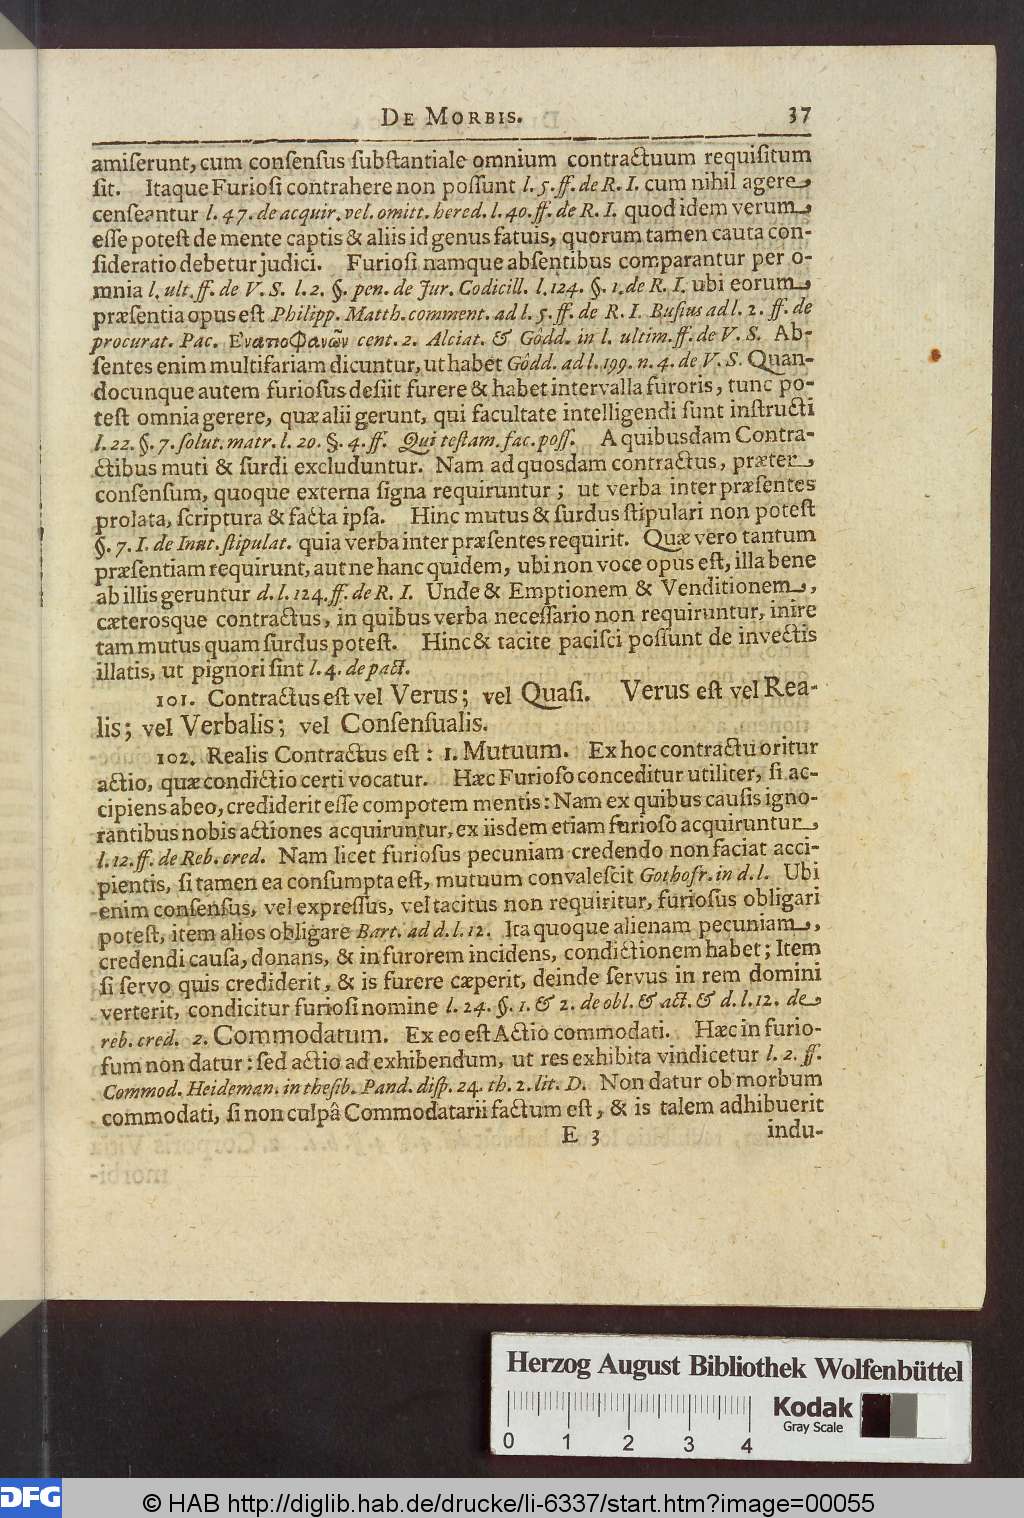 DE MORBIS. 37
amiſerunt, cum conſenſus ſubſtantiale omnium contractuum requiſitum
ſit. Itaque Furioſi contrahere non poſſunt l. 5. ff. de R. I. cum nihil agere
cenſeantur l. 47. de acquir. vel. omitt. hered. l. 40. ff. de R. I. quod idem verum
eſſe poteſt de mente captis & aliis id genus fatuis, quorum tamen cauta con-
ſideratio debetur judici. Furioſi namque abſentibus comparantur per o-
mnia l. ult. ff. de V. S. l. 2. §. pen. de Jur. Codicill. l. 124. §. 1. de R. I. ubi eorum
præſentia opus eſt Philipp. Matth. comment. ad l. 5. ff. de R. I. Buſius ad l. 2. ff. de
procurat. Pac. cent. 2. Alciat. & Gödd. in l. ultim. ff. de V. S. Ab-
ſentes enim multifariam dicuntur, ut habet Gödd. ad l. 199. n. 4. de V. S. Quan-
docunque autem furioſus deſiit furere & habet intervalla furoris, tunc po-
teſt omnia gerere, quæ alii gerunt, qui facultate intelligendi ſunt inſtructi
l. 22. §. 7. ſolut. matr. l. 20. §. 4. ff. Qui teſtam. fac. poſſ. A quibusdam Contra-
ctibus muti & ſurdi excluduntur. Nam ad quosdam contractus, præter
conſenſum, quoque externa ſigna requiruntur; ut verba inter præſentes
prolata, ſcriptura & facta ipſa. Hinc mutus & ſurdus ſtipulari non poteſt
§. 7. I. de Inut. ſtipulat. quia verba inter præſentes requirit. Quæ vero tantum
præſentiam requirunt, aut ne hanc quidem, ubi non voce opus eſt, illa bene
ab illis geruntur d. l. 124. ff. de R. I. Unde & Emptionem & Venditionem,
cæterosque contractus, in quibus verba neceſſario non requiruntur, inire
tam mutus quam ſurdus poteſt. Hinc & tacite paciſci poſſunt de invectis
illatis, ut pignori ſint l. 4. de pact.
101. Contractus eſt vel Verus; vel Quaſi. Verus eſt vel Rea-
lis; vel Verbalis; vel Conſenſualis.
102. Realis Contractus eſt: 1. Mutuum. Ex hoc contractu oritur
actio, quæ condictio certi vocatur. Hæc Furioſo conceditur utiliter, ſi ac-
cipiens ab eo, crediderit eſſe compotem mentis: Nam ex quibus cauſis igno-
rantibus nobis actiones acquiruntur, ex iisdem etiam furioſo acquiruntur
l. 12. ff. de Reb. cred. Nam licet furioſus pecuniam credendo non faciat acci-
pientis, ſi tamen ea conſumpta eſt, mutuum convaleſcit Gothofr. in d. l. Ubi
enim conſenſus, vel expreſſus, vel tacitus non requiritur, furioſus obligari
poteſt, item alios obligare Bart. ad d. l. 12. Ita quoque alienam pecuniam,
credendi cauſa, donans, & in furorem incidens, condictionem habet; Item
ſi ſervo quis crediderit, & is furere cæperit, deinde ſervus in rem domini
verterit, condicitur furioſi nomine l. 24. §. 1. & 2. de obl. & act. & d. l. 12. de
reb. cred. 2. Commodatum. Ex eo eſt Actio commodati. Hæc in furio-
ſum non datur: ſed actio ad exhibendum, ut res exhibita vindicetur l. 2. ff.
Commod. Heideman. in theſib. Pand. diſp. 24. th. 2. lit. D. Non datur ob morbum
commodati, ſi non culpâ Commodatarii factum eſt, & is talem adhibuerit
E 3 indu-
Herzog August Bibliothek Wolfenbüttel
Kodak
Gray Scale
0 1 2 3 4
DFG © HAB http://diglib.hab.de/drucke/li-6337/start.htm?image=00055